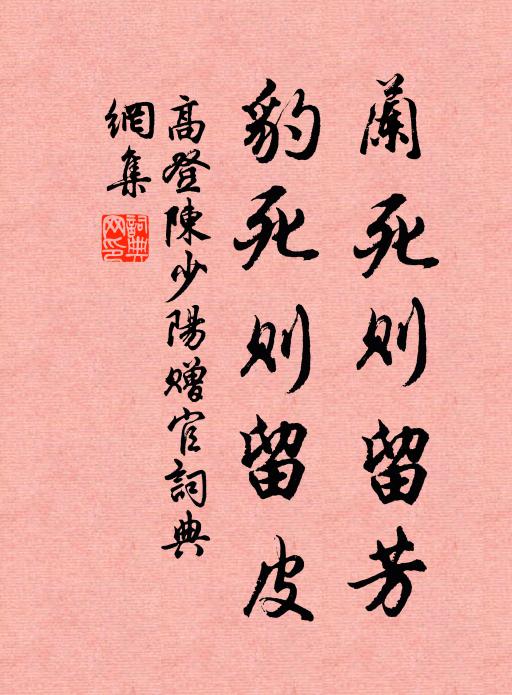 蘭死则留芳
豹死则留皮
高登陳少陽赠官詞典
網集
詞典网印